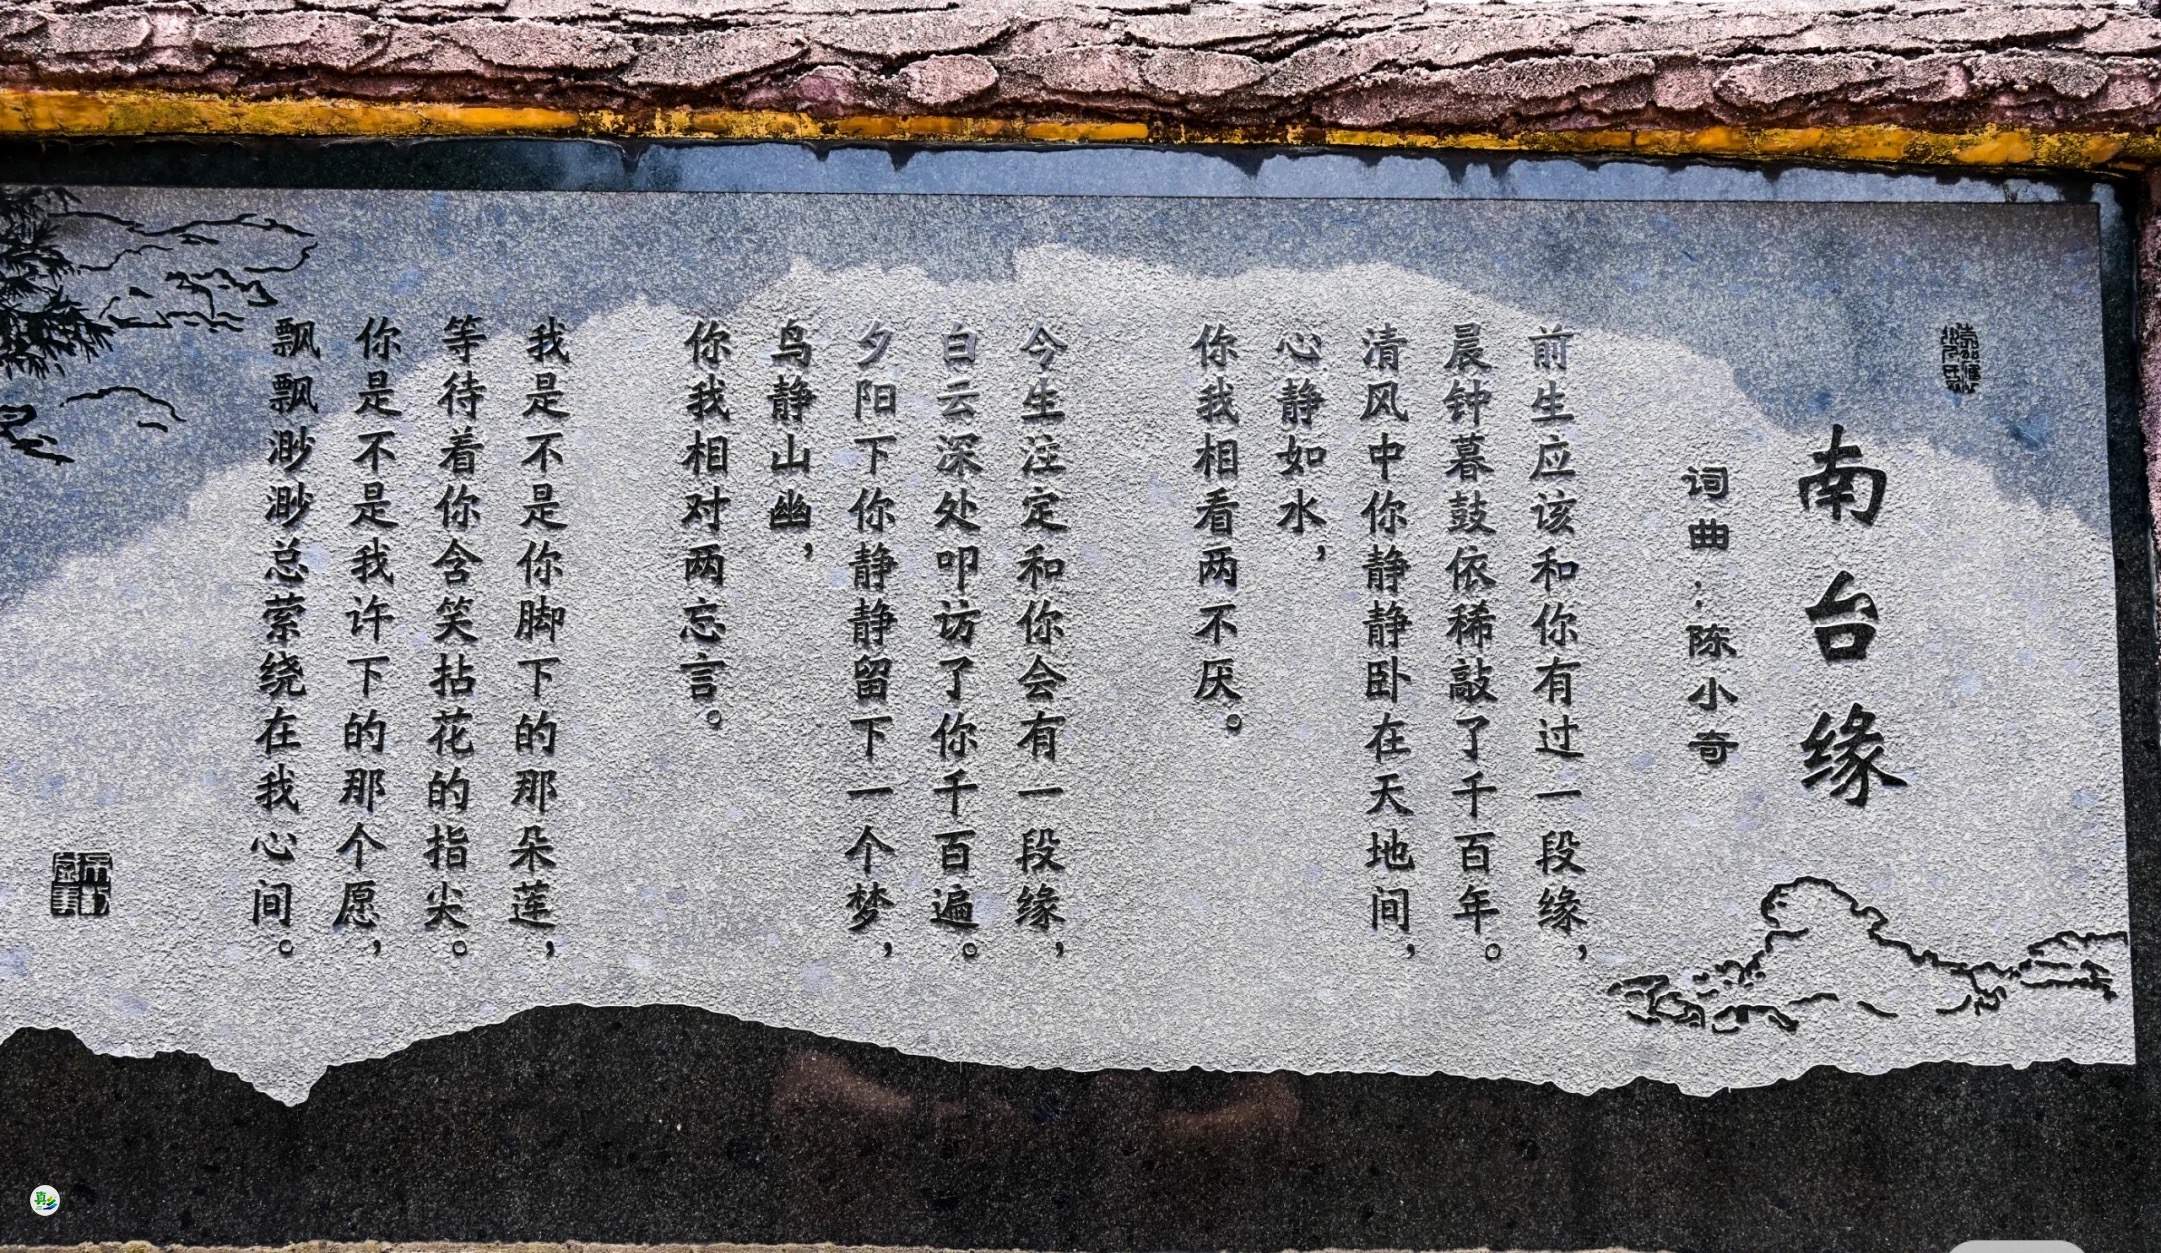 南台缘
词曲：陈小奇
前生应该和你有过一段缘，
晨钟暮鼓依稀敲了千百年。
清风中你静静卧在天地间，
心静如水，
你我相看两不厌。
今生注定和你会有一段缘，
白云深处叩访了你千百遍。
夕阳下你静静留下一个梦，
鸟静山幽，
你我相对两忘言。
我是不是你脚下的那朵莲，
等待着你含笑拈花的指尖。
你是不是我许下的那个愿，
飘飘渺渺总萦绕在我心间。